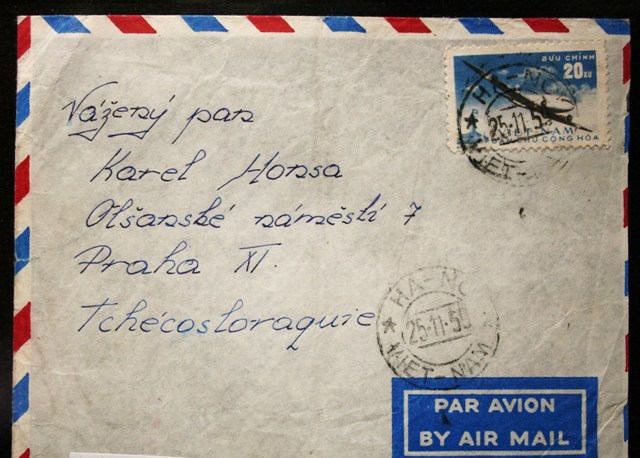 BƯU CHÍNH
20 XU
HA-NO
25-11-59
VIỆT NAM
DÂN CHỦ CỘNG HÒA
VIET-
Vážený pan
Karel Honsa
Olšanské náměstí 7
Praha XI.
Tchécoslovaquie
HA-NO
25-11-59
VIET-NAM
PAR AVION
BY AIR MAIL